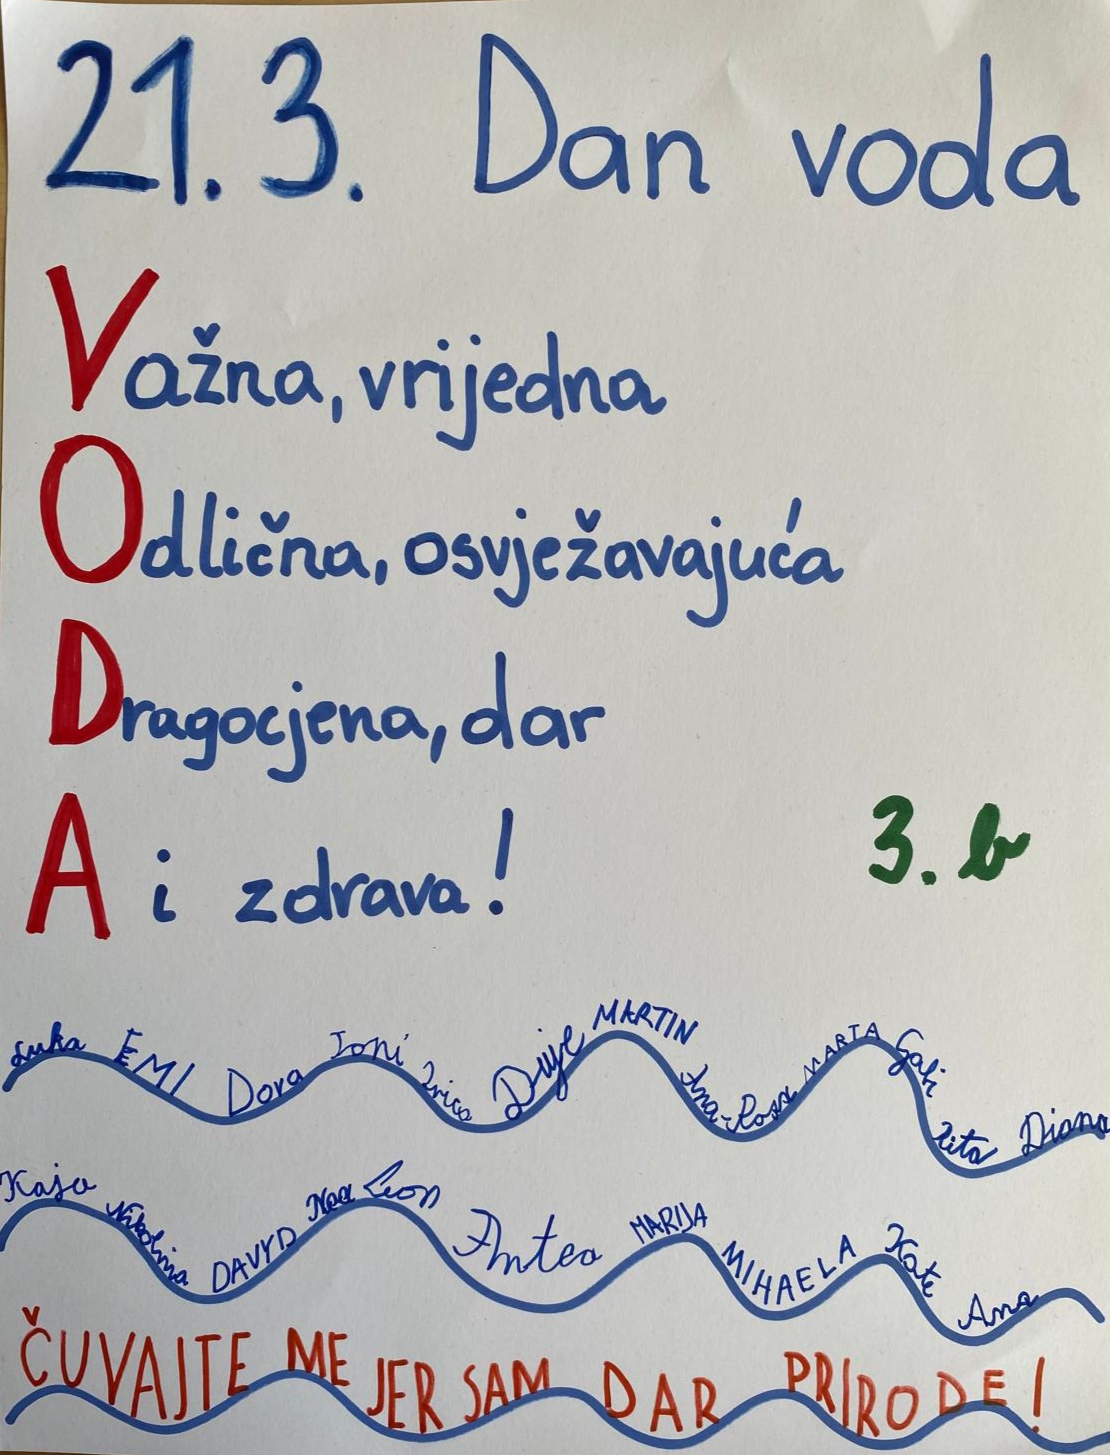 21.3. Dan voda
Važna, vrijedna
Odlična, osvježavajuća
Dragocjena, dar
A i zdrava!
3. b
Luka EMI Dora Toni Ivica Duje MARTIN Ana-Rosa MARTA Gabi Rita Diana
Kaja Nikolina DAVID Noa Leon Antea MARIJA MIHAELA Kate Ana
ČUVAJTE ME JER SAM DAR PRIRODE!